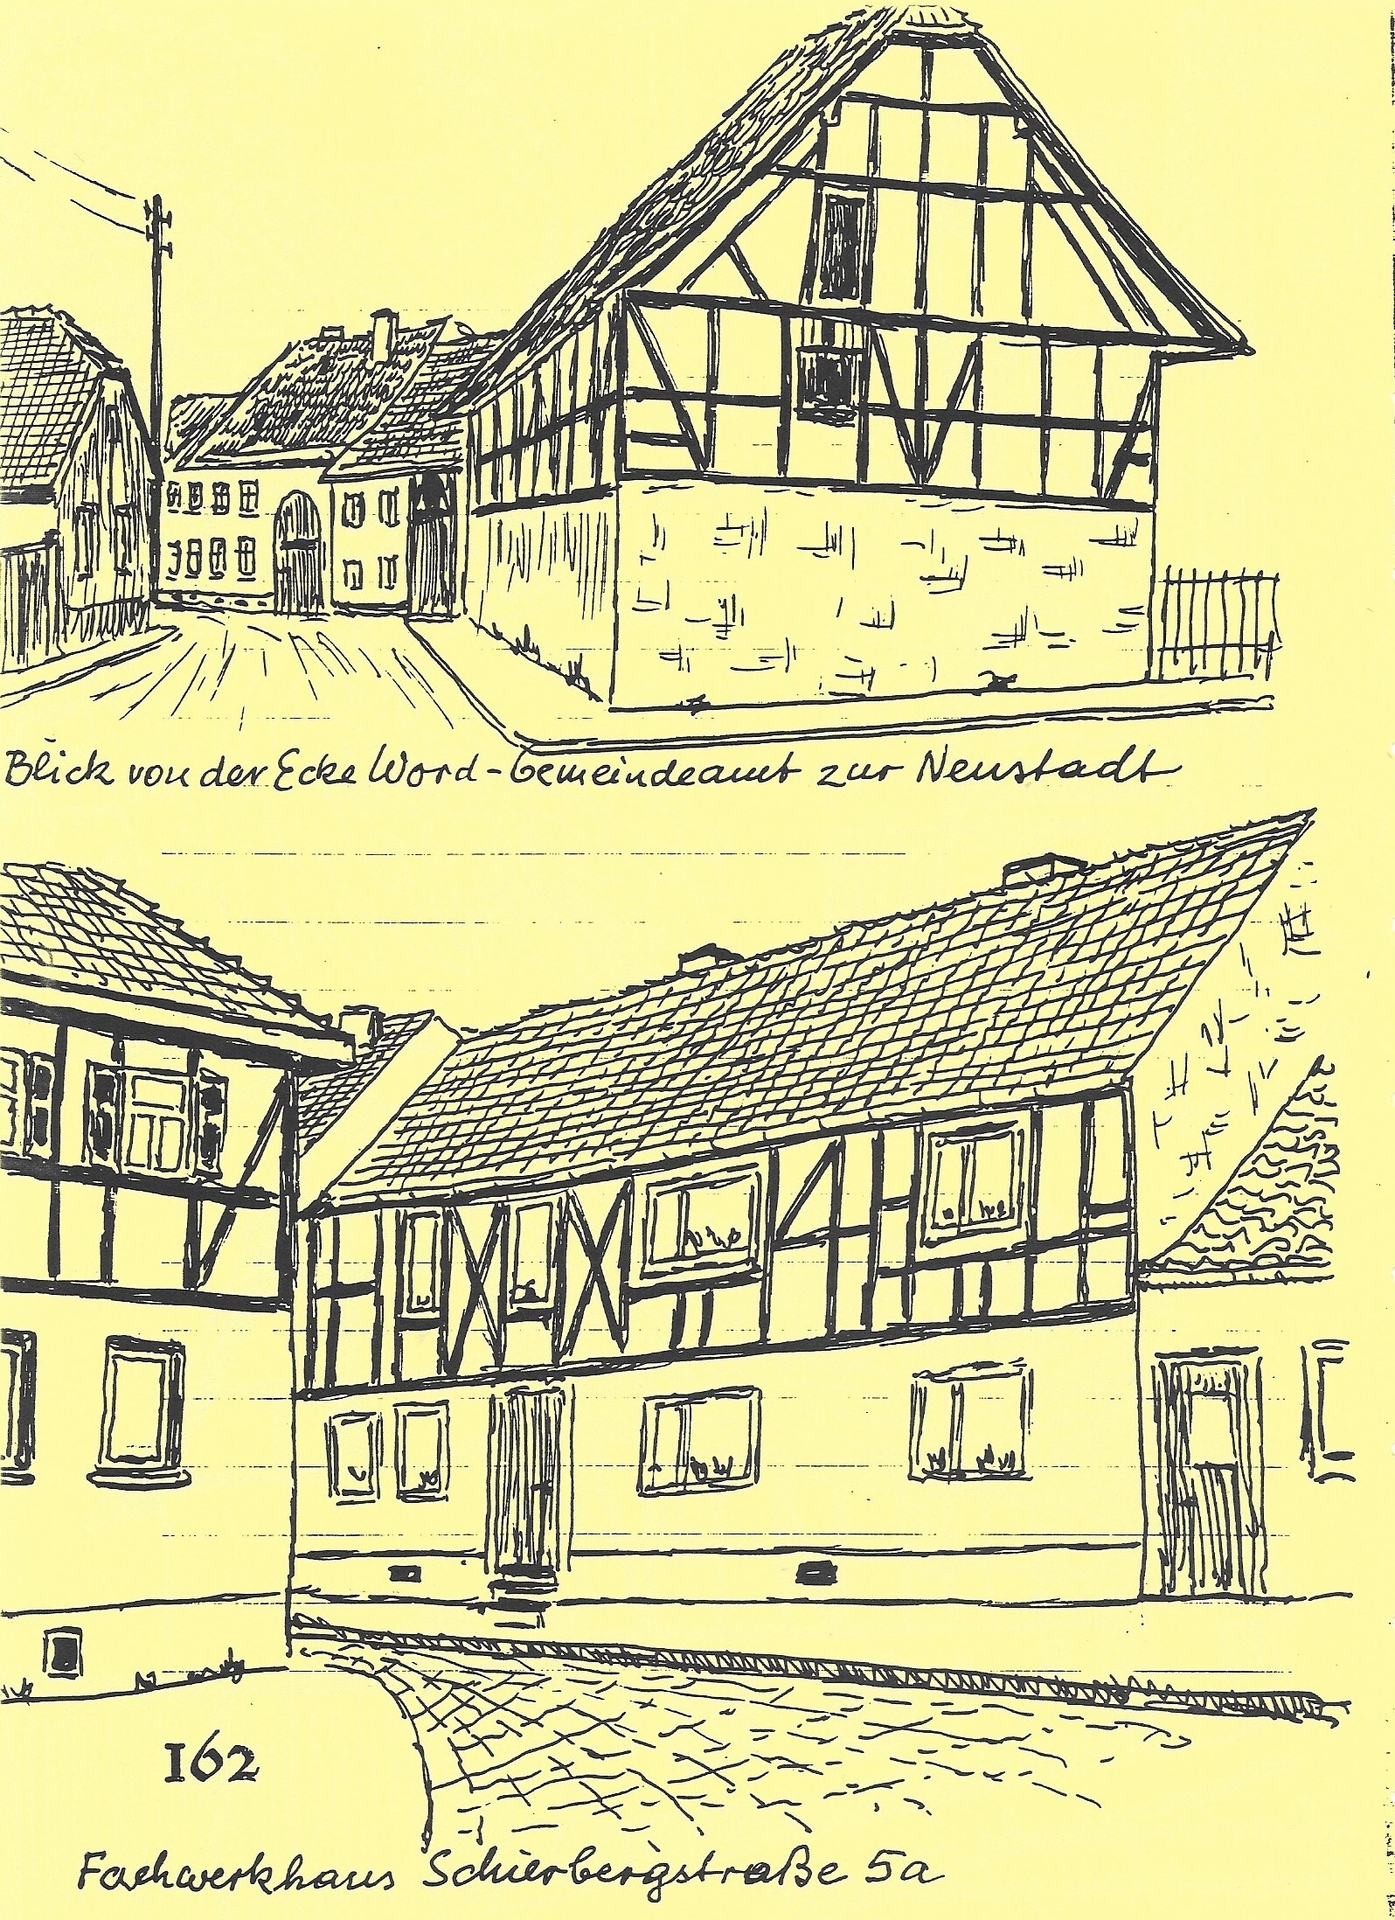 Blick von der Ecke Word-Gemeindeamt zur Neustadt
162
Fachwerkhaus Schierbergstraße 5a